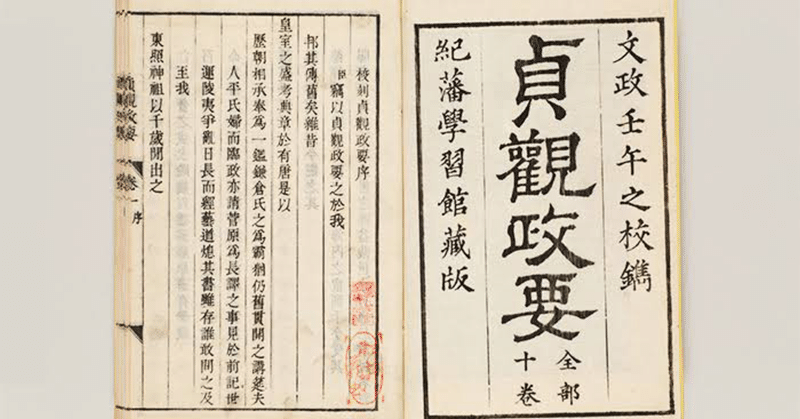 文政壬午之校鐫
貞觀政要
全部
十卷
紀藩學習館藏版
校刻貞觀政要序
臣竊以貞觀政要之於我
邦其傳舊矣維昔
皇室之盛考典章於有唐是以
歷朝相承奉爲一鑑鎌倉氏之爲霸猶仍舊貫開之講筵夫
人平氏婦而臨政亦請菅原爲長譯之事見於前記世
運陵夷爭觀日長而經藝道熄其書雖存誰敢問之及
至我
東照神祖以千歲間出之
貞觀政要 卷一 序